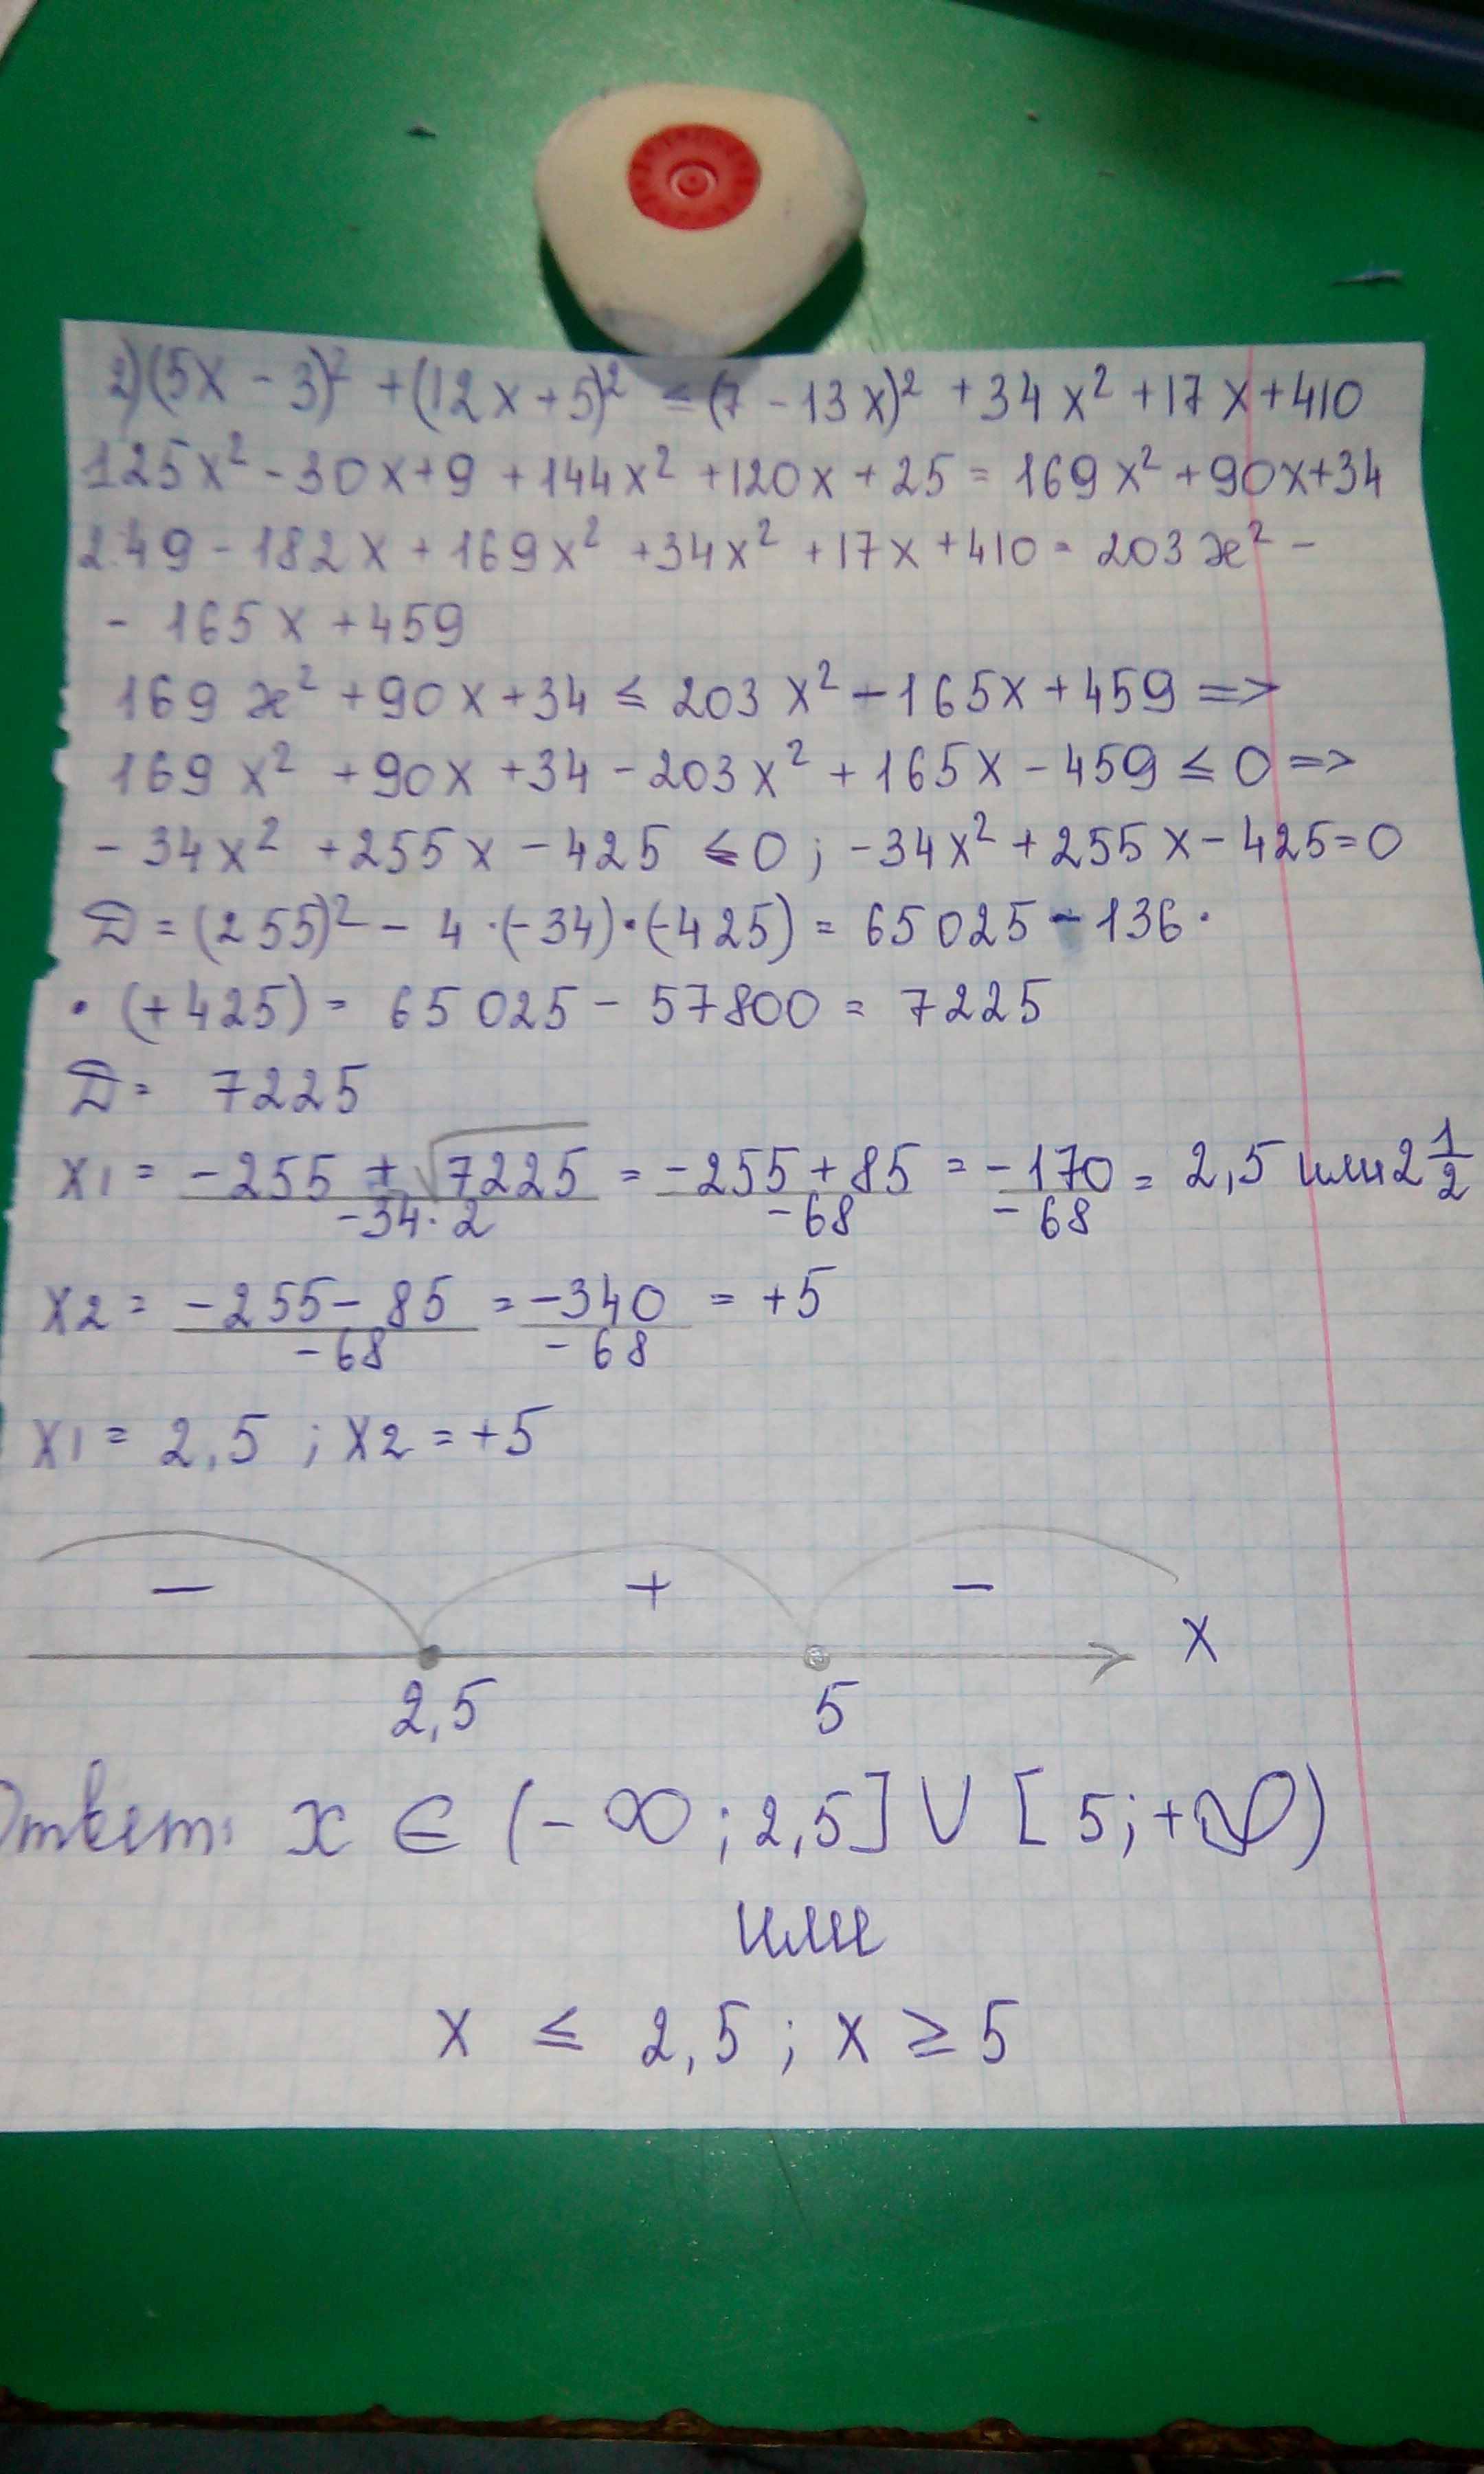 2) (5x - 3)² + (12x + 5)² ≤ (7 - 13x)² + 34x² + 17x + 410
1 25x² - 30x + 9 + 144x² + 120x + 25 = 169x² + 90x + 34
2. 49 - 182x + 169x² + 34x² + 17x + 410 = 203x² -
- 165x + 459
169x² + 90x + 34 ≤ 203x² - 165x + 459 =>
169x² + 90x + 34 - 203x² + 165x - 459 ≤ 0 =>
- 34x² + 255x - 425 ≤ 0 ; -34x² + 255x - 425 = 0
D = (255)² - 4 · (-34) · (-425) = 65025 - 136 ·
· (+425) = 65025 - 57800 = 7225
D = 7225
x1 = (-255 + √7225)/(-34·2) = (-255 + 85)/(-68) = (-170)/(-68) = 2,5 или 2 1/2
x2 = (-255 - 85)/(-68) = (-340)/(-68) = +5
x1 = 2,5 ; x2 = +5
- + -
x
2,5 5
Ответ: x ∈ (-∞ ; 2,5] ∪ [5 ; +∞)
или
x ≤ 2,5 ; x ≥ 5